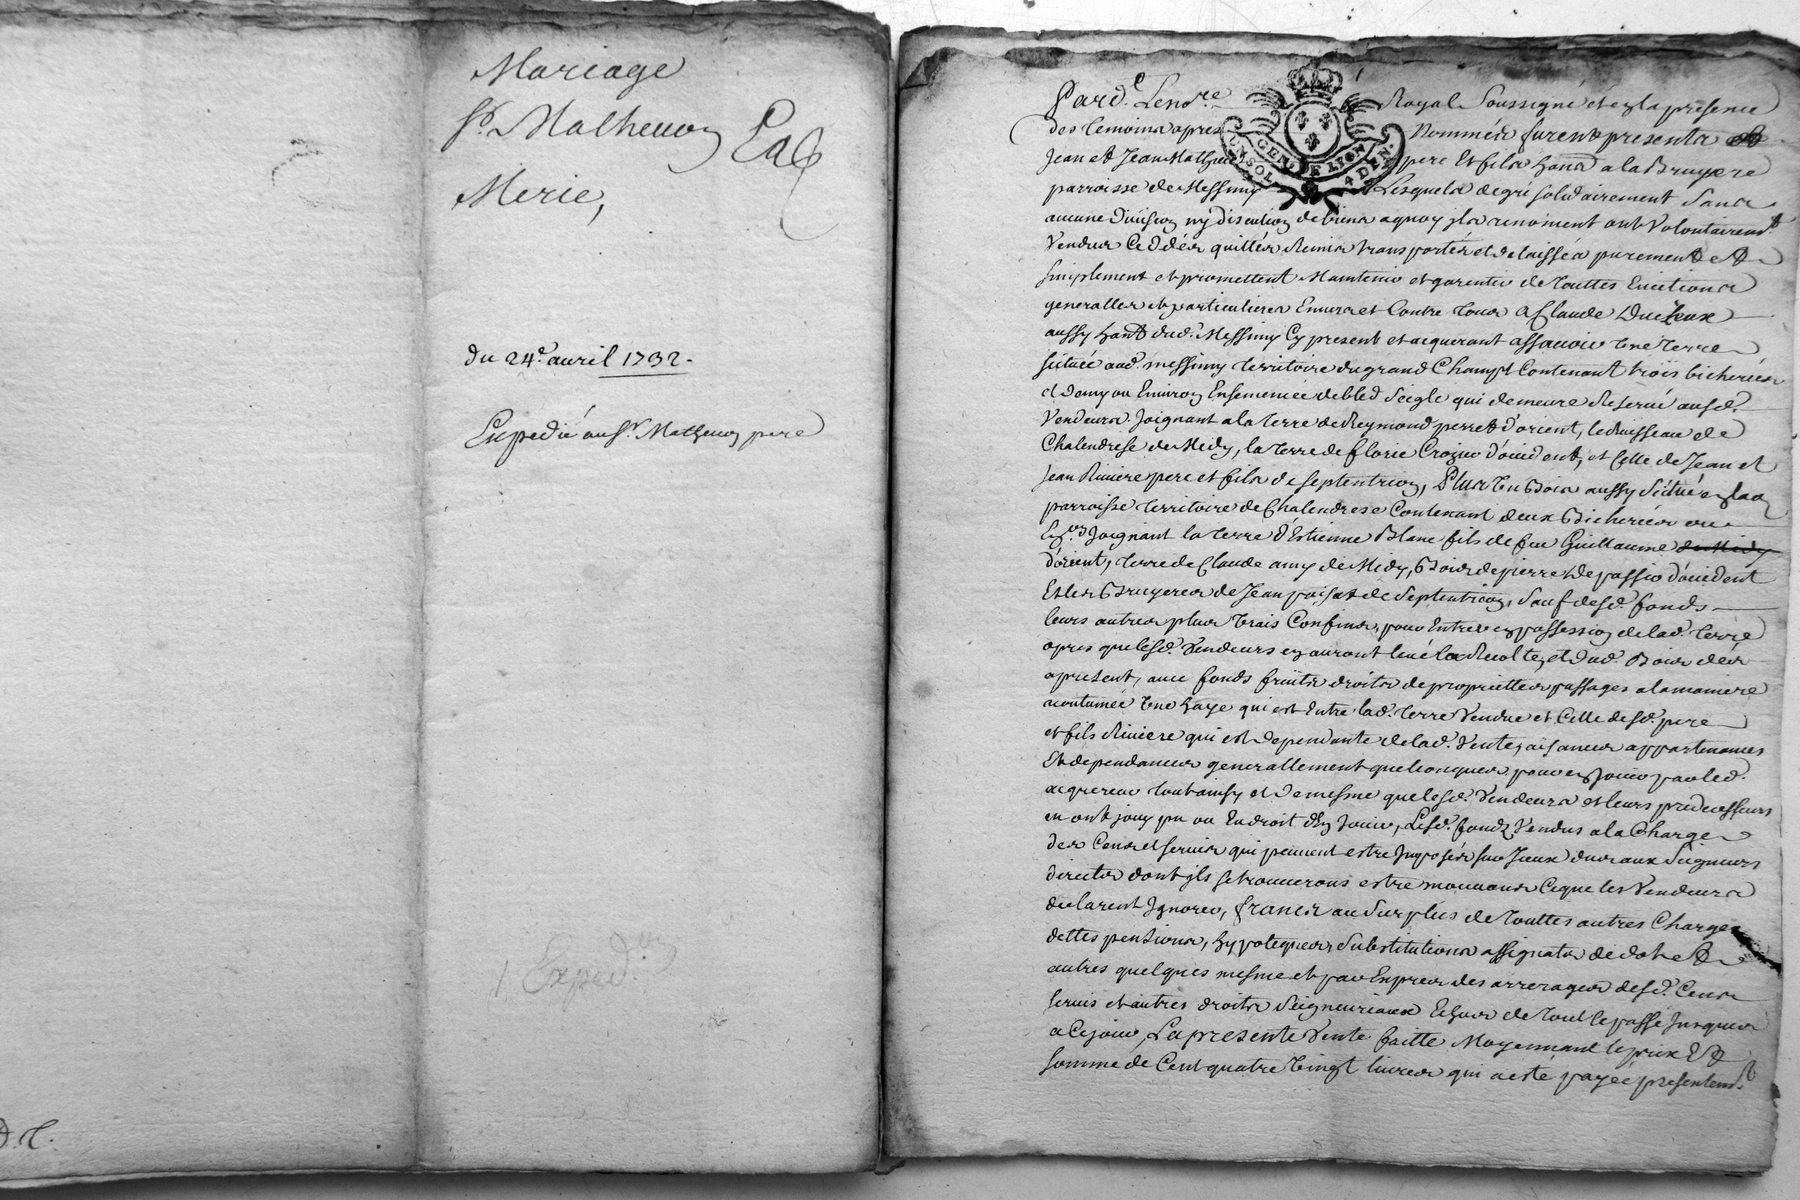 Mariage
Sr. Mathevon
Merie,
du 24e. avril 1732.
Expedié au Sr. Mathevon pere
1 Exped.on
Pard.t Le no.re Royal Soussigné et en la presence
des temoins apres Nommés furent presents
Jean et Jean Mathieu pere et fils hans a la Bruyere
parroisse de Messimy Lesquels de gré solidairement sans
aucune division ny discution de biens a quoy ils renoncent ont volontairemt
vendus ceddés quittés remis transportés et delaissés purement et
simplement et promettent maintenir et garentir de touttes evictions
generalles et particulieres envers et contre tous a Claude
aussy hant dud. Messimy cy present et acquerant assavoir une terre
scituée aud. messimy territoire du grand Champt contenant trois bicherées
et demy ou environ Ensemencée de bled seigle qui demeure reservé ausd.
vendeurs joignant a la terre de Reymond perret d'orient, le ruisseau de
Chalendrese de midy, la terre de florie Crozier d'occident, et celle de Jean et
Jean Riviere pere et fils de septentrion, Plus un Bois aussy scitué en lad
parroisse territoire de Chalendrese contenant deux Bicherées ou
Env.on joignant la terre d'Estienne Blanc fils de feu Guillaume de Midy
d'orient, terre de Claude amy de Midy, Bois de pierre d'occident
Et les Bruyeres de Jean de septentrion, sauf desd. fonds
leurs autres plus vrais confins, pour entrer en possession de lad. terre
apres que lesd. vendeurs en auront levé la recolte, et dud. Bois dés
apresent, avec fonds fruits droits de proprietté passages a la maniere
acoutumée une haye qui est entre lad. terre vendue et celle desd. pere
et fils Riviere qui est dependante de lad. vente, aisances appartenances
Et dependances generallement quelconques pour en jouir par led.
acquereur tout ainsy et de mesme que lesd. vendeurs et leurs predecesseurs
en ont jouy pu ou eu droit d'en jouir, Lesd. fonds vendus a la Charge
des Cens et servis qui peuvent estre imposés sur iceux dus aux seigneurs
directs dont ils se trouverons estre mouvans ce que les vendeurs
declarent ignorer, francs au surplus de touttes autres Charges
dettes pensions, hypoteques substitutions assignats de dot et
autres quelques mesme et par expres des arrerages desd. Cens
servis et autres droits seigneuriaux echus de tout le passé jusques
a ce jour, La presente vente faitte moyennant le prix et
somme de Cent quatre vingt livres qui a esté payée presentemt
GEN. DE LYON
UN SOL 4 DEN.